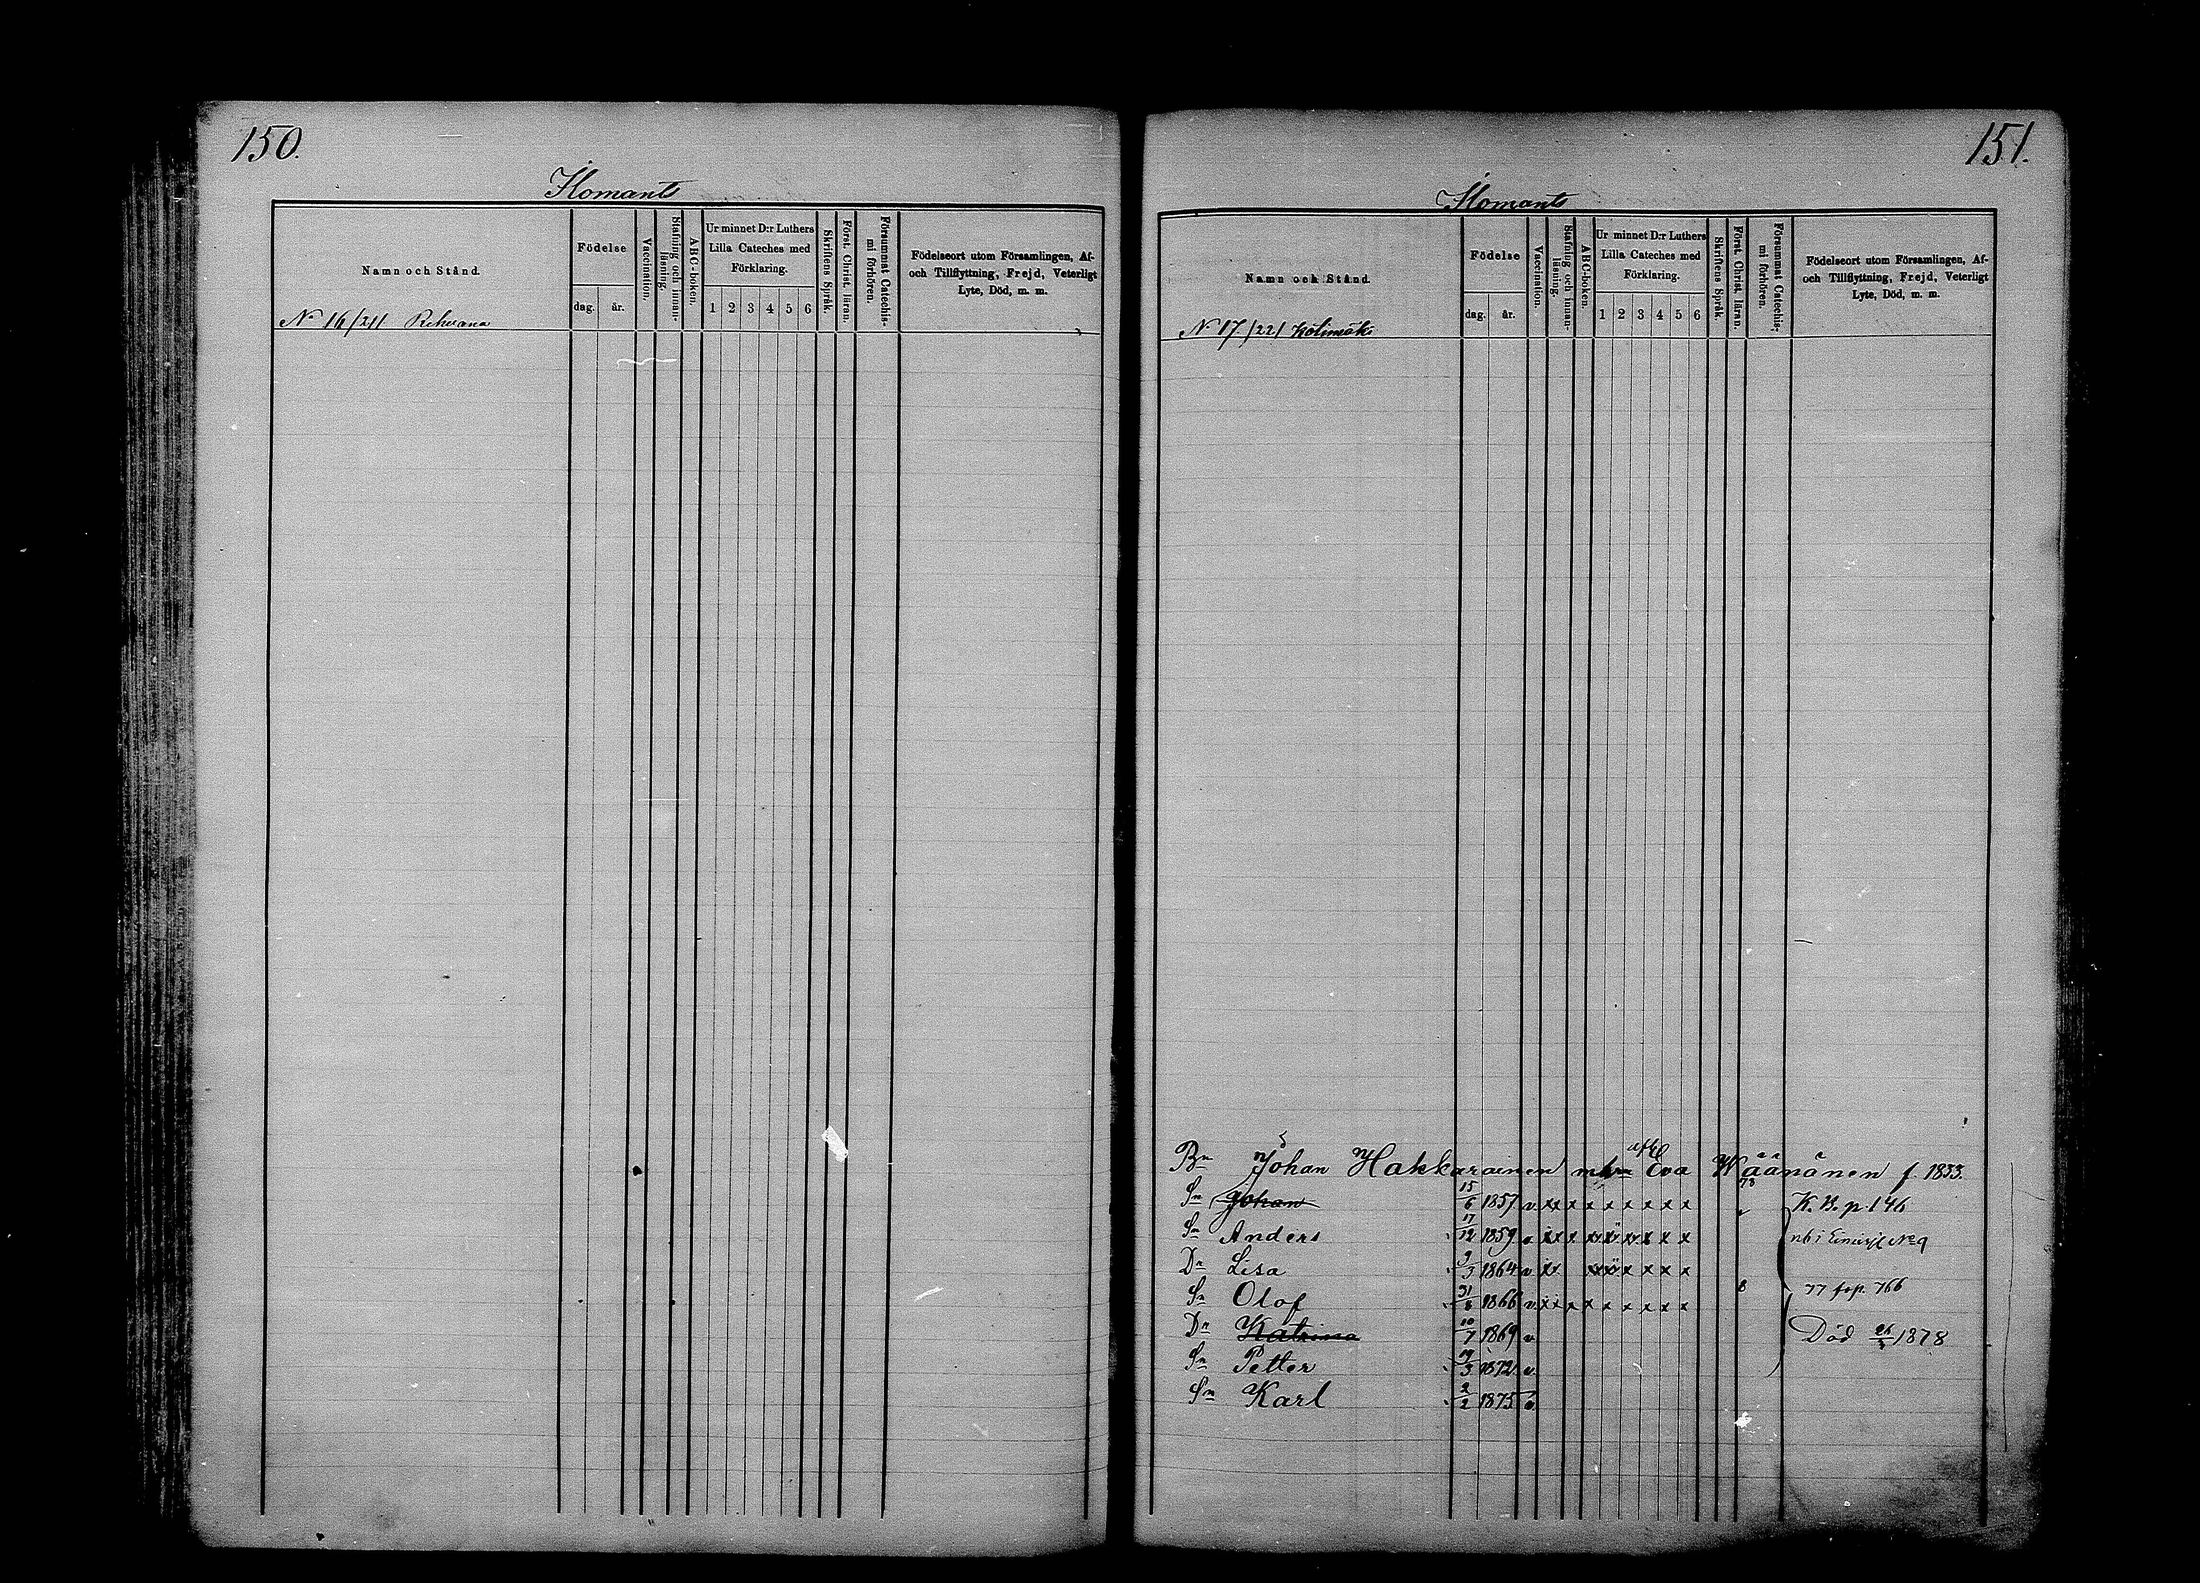 150.
Ilomants
Namn och Stånd.
Födelse
dag.
år.
Vaccination.
Stafning och innan-
läsning.
ABC-boken.
Ur minnet D:r Luthers
Lilla Cateches med
Förklaring.
1 2 3 4 5 6
Skriftens Språk.
Först. Christ. läran.
Försummat Catechis-
mi förhören.
Födelseort utom Församlingen, Af-
och Tillflyttning, Frejd, Veterligt
Lyte, Död, m. m.
N 16 /21/
151.
Ilomants
Namn och Stånd.
Födelse
dag.
år.
Vaccination.
Stafning och innan-
läsning.
ABC-boken.
Ur minnet D:r Luthers
Lilla Cateches med
Förklaring.
1 2 3 4 5 6
Skriftens Språk.
Först. Christ. läran.
Försummat Catechis-
mi förhören.
Födelseort utom Församlingen, Af-
och Tillflyttning, Frejd, Veterligt
Lyte, Död, m. m.
N 17 /22/
Bn Johan Hakkarainen Eva Wäänänen f. 1833.
Sn Johan 15/6 1857 v xx x x x x x x x K. B. p. 146
Sn Anders 17/12 1859
Dn Lisa 9/3 1864 v
Sn Olof 31/8 1866 v 8 77 766
Dn Katrina 10/7 1869 v Död 1878
Sn Petter 19/3 1872 v
Sn Karl 2/2 1875 v